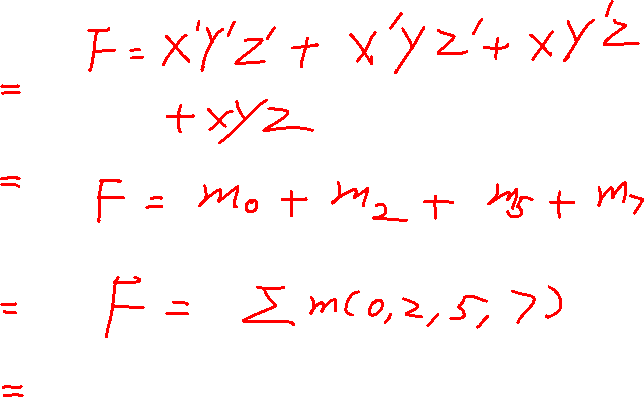 F = X'Y'Z' + X'YZ' + XY'Z
=
+ XYZ
=
F = m₀ + m₂ + m₅ + m₇
= F = Σ m(0,2,5,7)
=